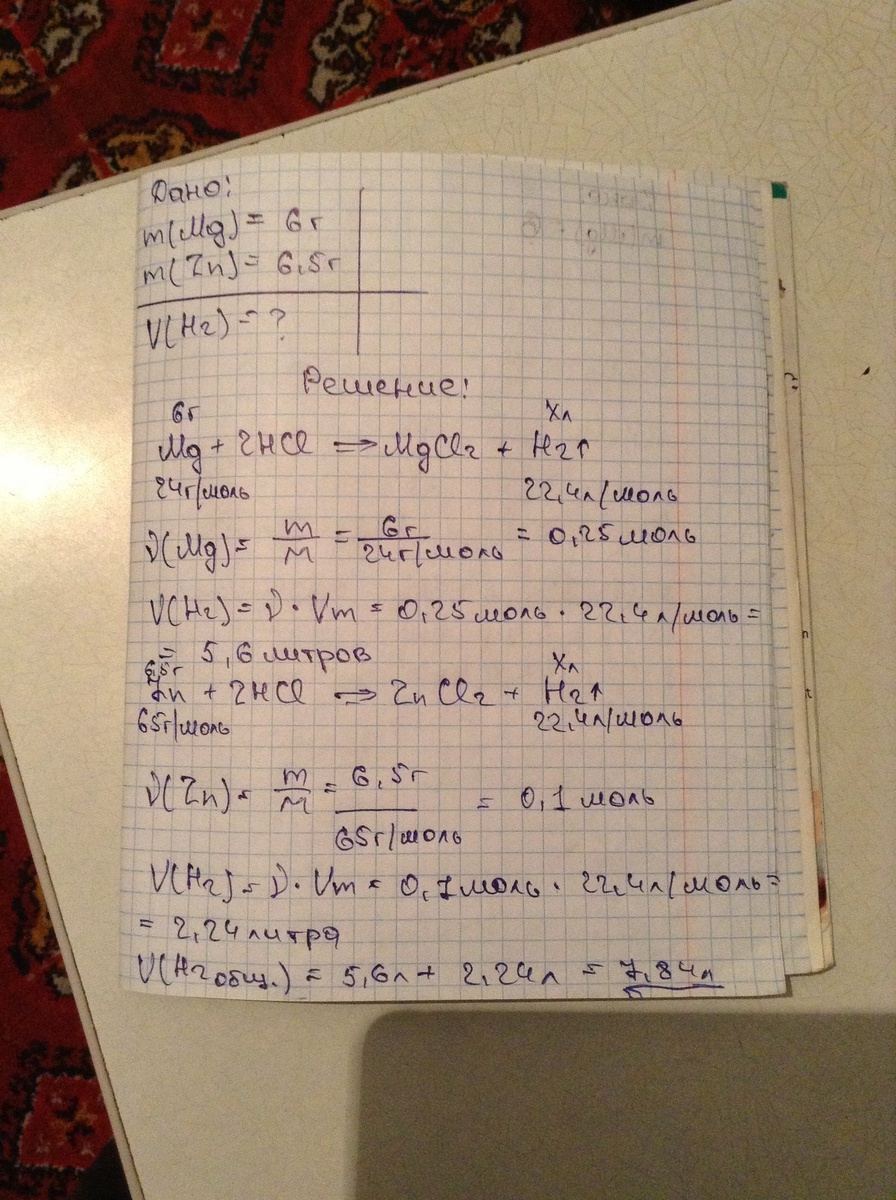 Дано:
m(Mg) = 6г
m(Zn) = 6,5г
V(H2) = ?
Решение:
6г хл
Mg + 2HCl => MgCl2 + H2↑
24г/моль 22,4л/моль
ν(Mg) = m/M = 6г/24г/моль = 0,25 моль
V(H2) = ν · Vm = 0,25 моль · 22,4л/моль =
= 5,6 литров
6,5г хл
Zn + 2HCl => ZnCl2 + H2↑
65г/моль 22,4л/моль
ν(Zn) = m/M = 6,5г/65г/моль = 0,1 моль
V(H2) = ν · Vm = 0,1 моль · 22,4л/моль =
= 2,24 литра
V(H2 общ.) = 5,6л + 2,24л = 7,84л